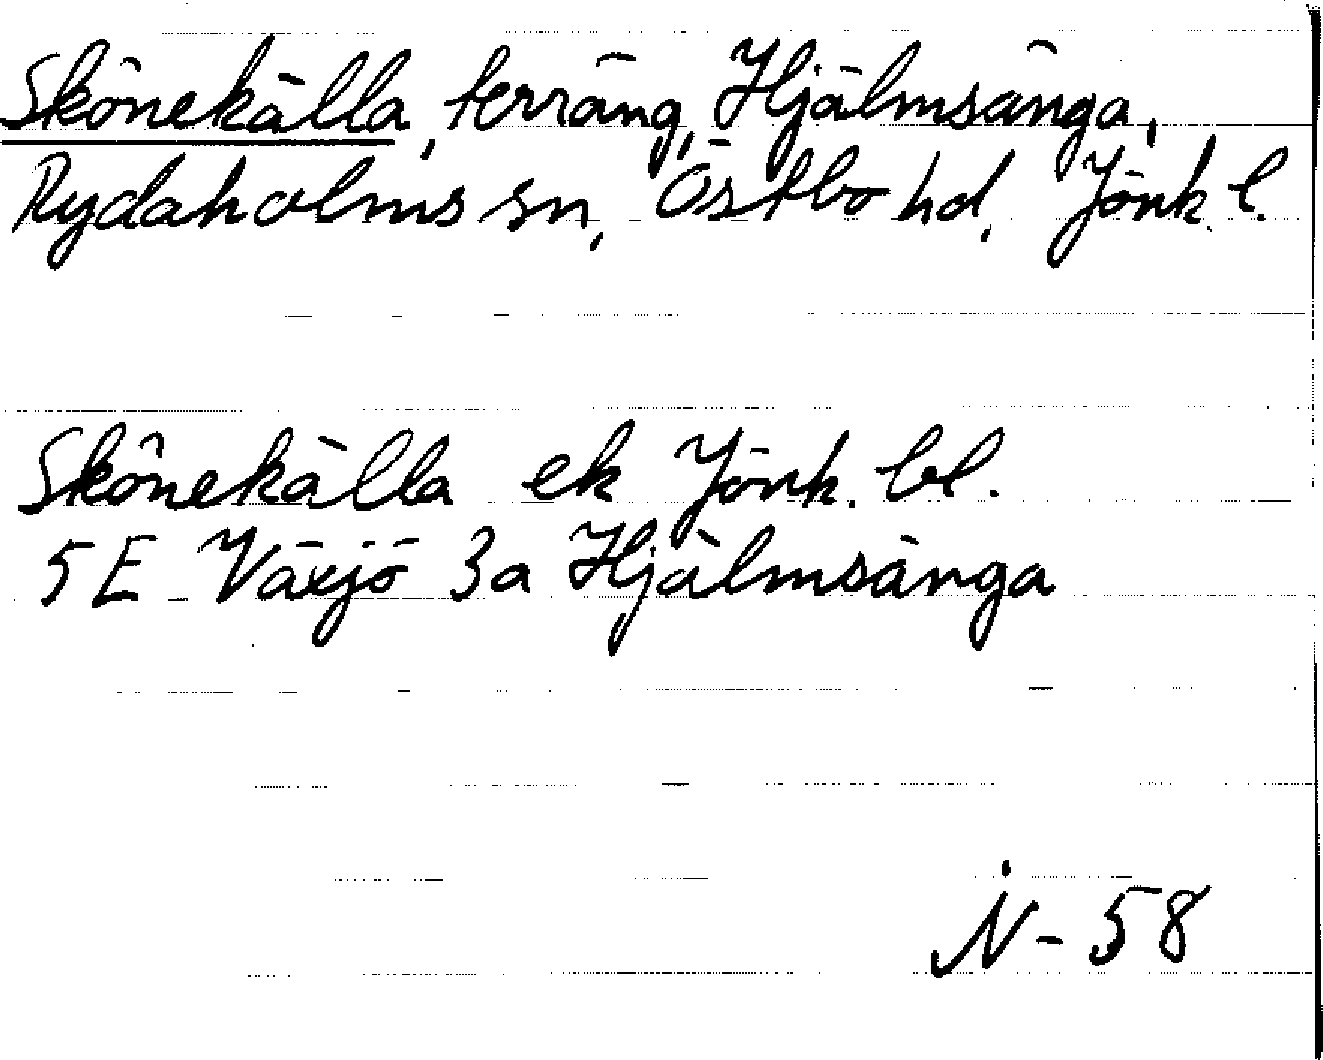 Skönekälla, terräng, Hjälmsänga,
Rydaholms sn, Östbo hd, Jönk. l.
Skönekälla ek Jönk. bl.
5E Växjö 3a Hjälmsänga
N-58